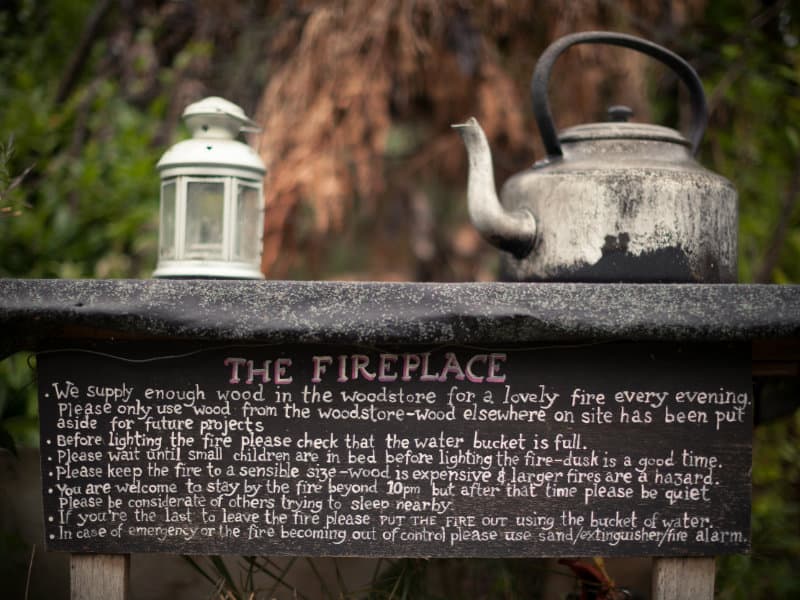 THE FIREPLACE
• We supply enough wood in the woodstore for a lovely fire every evening.
Please only use wood from the woodstore-wood elsewhere on site has been put
aside for future projects
• Before lighting the fire please check that the water bucket is full.
• Please wait until small children are in bed before lighting the fire-dusk is a good time.
• Please keep the fire to a sensible size-wood is expensive & larger fires are a hazard.
• You are welcome to stay by the fire beyond 10pm but after that time please be quiet
Please be considerate of others trying to sleep nearby.
• If you're the last to leave the fire please PUT THE FIRE OUT using the bucket of water.
• In case of emergency or the fire becoming out of control please use sand/extinguisher/fire alarm.